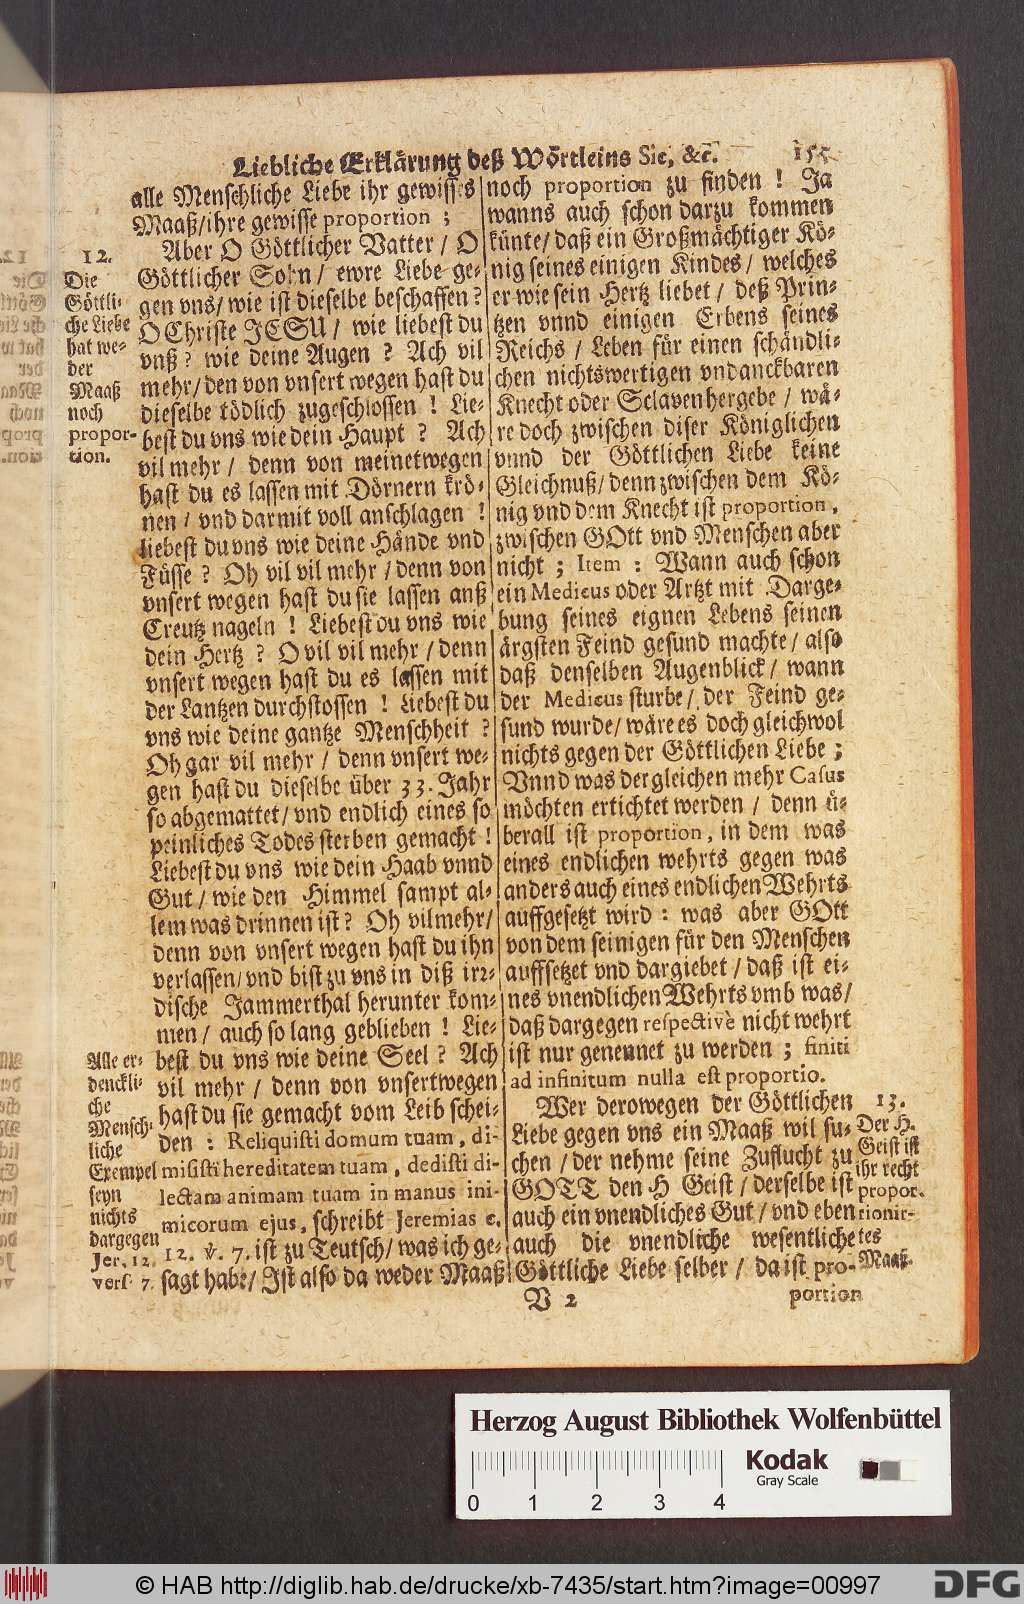 Liebliche Erklärung deß Wörtleins Sic, &c. 155
alle Menschliche Liebe ihr gewisses
Maaß/ihre gewisse proportion ;
12.
Die
Göttli-
che Liebe
hat we-
der
Maaß
noch
propor-
tion.
Aber O Göttlicher Vatter / O
Göttlicher Sohn / ewre Liebe ge-
gen vns/ wie ist dieselbe beschaffen?
O Christe JESU / wie liebest du
vnß ? wie deine Augen ? Ach vil
mehr/ den von vnsert wegen hast du
dieselbe tödlich zugeschlossen ! Lie-
best du vns wie dein Haupt ? Ach
vil mehr / denn von meinetwegen
hast du es lassen mit Dörnern krö-
nen / vnd darmit voll anschlagen !
liebest du vns wie deine Hände vnd
Füsse ? Oh vil vil mehr / denn von
vnsert wegen hast du sie lassen anß
Creutz nageln ! Liebest du vns wie
dein Hertz ? O vil vil mehr / denn
vnsert wegen hast du es lassen mit
der Lantzen durchstossen ! Liebest du
vns wie deine gantze Menschheit ?
Oh gar vil mehr / denn vnsert we-
gen hast du dieselbe über 33. Jahr
so abgemattet/ vnd endlich eines so
peinliches Todes sterben gemacht !
Liebest du vns wie dein Haab vnnd
Gut / wie den Himmel sampt al-
lem was drinnen ist ? Oh vil mehr/
denn von vnsert wegen hast du ihn
verlassen/ vnd bist zu vns in diß irr-
dische Jammerthal herunter kom-
men / auch so lang geblieben ! Lie-
best du vns wie deine Seel ? Ach
vil mehr / denn von vnsertwegen
hast du sie gemacht vom Leib schei-
den : Reliquisti domum tuam, di-
misisti hereditatem tuam, dedisti di-
lectam animam tuam in manus ini-
micorum ejus, schreibt Jeremias c.
12. v. 7. ist zu Teutsch/ was ich ge-
sagt habe/ Ist also da weder Maaß
Alle er-
denckli-
che
Mensch-
liche
Exempel
seyn
nichts
dargegen
Jer. 12.
vers. 7.
noch proportion zu finden ! Ja
wanns auch schon darzu kommen
künte/ daß ein Großmächtiger Kö-
nig seines einigen Kindes / welches
er wie sein Hertz liebet / deß Prin-
tzen vnnd einigen Erbens seines
Reichs / Leben für einen schändli-
chen nichtswertigen vndanckbaren
Knecht oder Sclaven hergebe / wä-
re doch zwischen diser Königlichen
vnnd der Göttlichen Liebe keine
Gleichnuß/ denn zwischen dem Kö-
nig vnd dem Knecht ist proportion,
zwischen GOtt vnd Menschen aber
nicht ; Item : Wann auch schon
ein Medicus oder Artzt mit Darge-
bung seines eignen Lebens seinen
ärgsten Feind gesund machte / also
daß denselben Augenblick / wann
der Medicus sturbe / der Feind ge-
sund wurde/ wäre es doch gleichwol
nichts gegen der Göttlichen Liebe ;
Vnnd was dergleichen mehr Casus
möchten ertichtet werden / denn ü-
berall ist proportion, in dem was
eines endlichen wehrts gegen was
anders auch eines endlichen Wehrts
auffgesetzt wird : was aber GOtt
von dem seinigen für den Menschen
auffsetzet vnd dargiebet / daß ist ei-
nes vnendlichen Wehrts vmb was/
daß dargegen respectivè nicht wehrt
ist nur genennet zu werden ; finiti
ad infinitum nulla est proportio.
Wer derowegen der Göttlichen
Liebe gegen vns ein Maaß wil su-
chen / der nehme seine Zuflucht zu
GOTT den H Geist / derselbe ist
auch ein vnendliches Gut / vnd eben
auch die vnendliche wesentliche
Göttliche Liebe selber / da ist pro-
13.
Der H.
Geist ist
ihr recht
propor-
tionir-
tes
Maaß.
V 2
portion
Herzog August Bibliothek Wolfenbüttel
0 1 2 3 4
Kodak
Gray Scale
© HAB http://diglib.hab.de/drucke/xb-7435/start.htm?image=00997
DFG